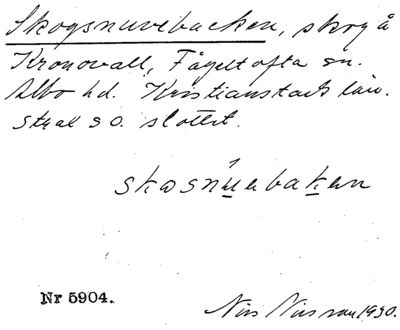 Skogsnuvebacken, skog å
Kronovall, Fågeltofta sn.
Albo hd. Kristianstads län.
str. so. slottet.
skosnuebaken
Nr 5904.
Nils Nilsson 1930.